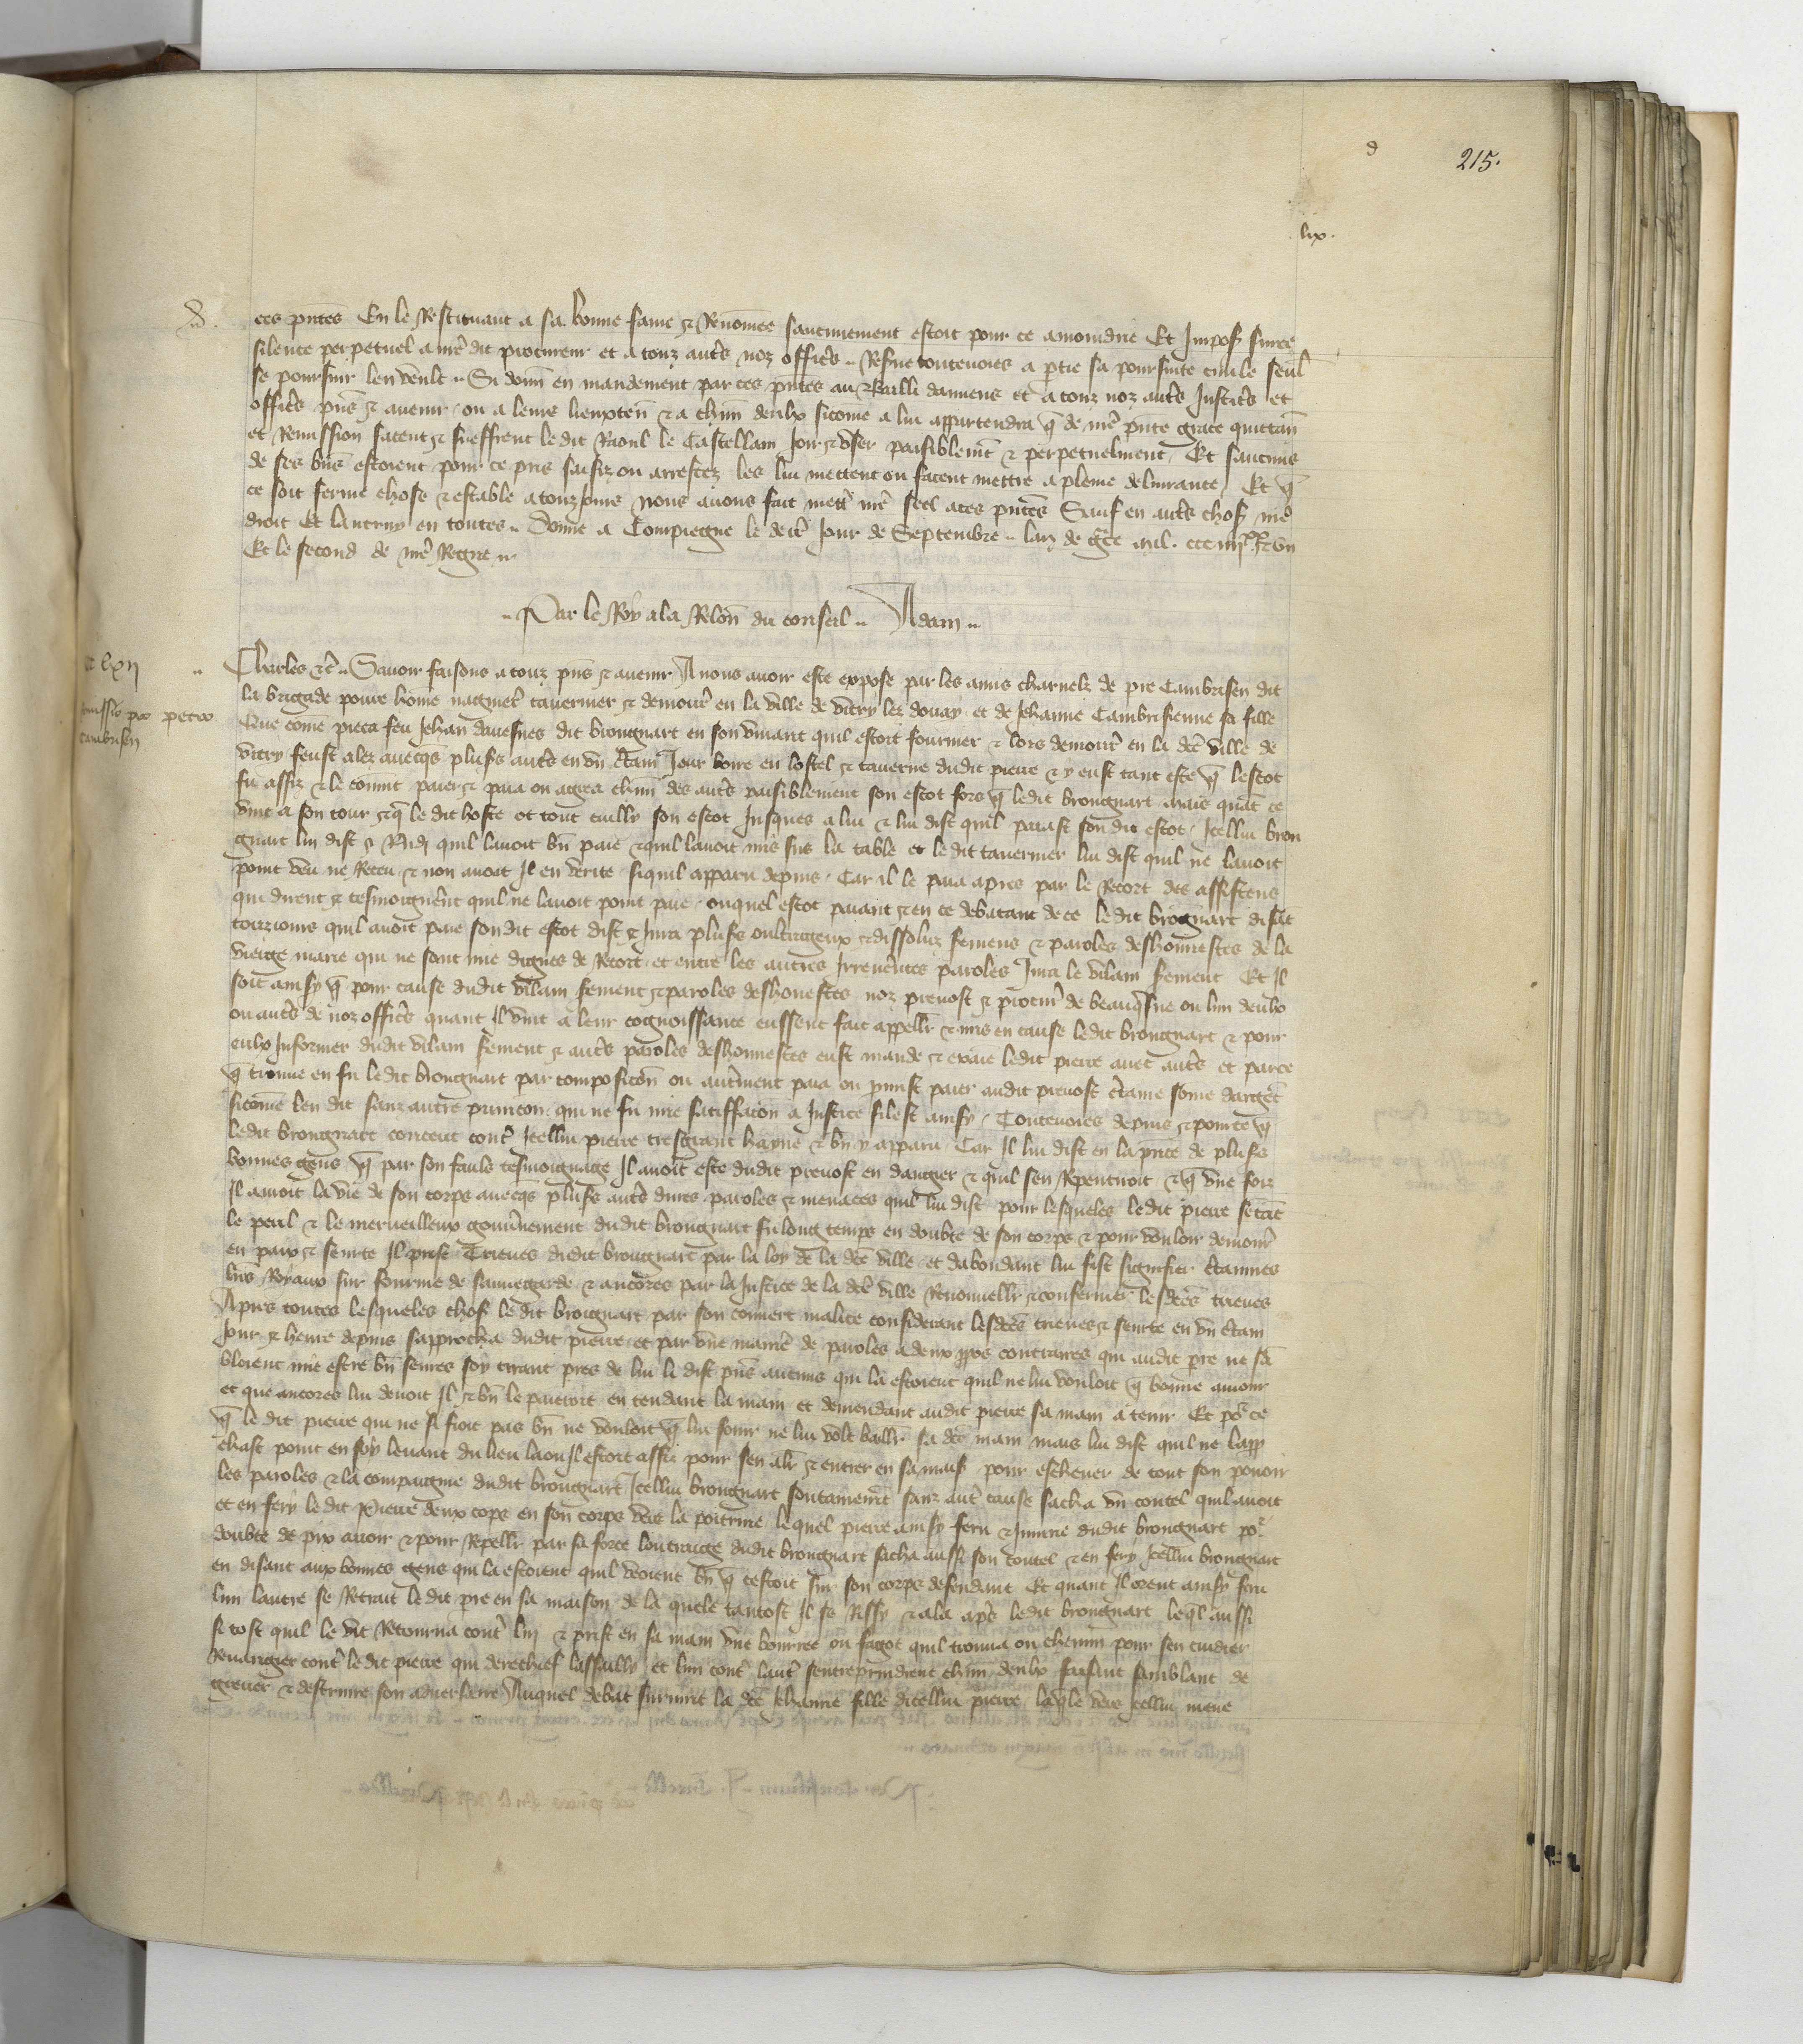 215.
lix.
ces pntes En le Restituant a sa bonne fame & Renomee saucunement estoit pour ce amoindrie Et Imposs surce
silence perpetuel a nrē dit procureur et a touz autrs noz officrs Resue toutevoies a ptie sa poursuite civile seul
se poursuir len veult Si donn en mandement par ces pntes au Bailli damiens et a touz noz autrs Justicrs et
officrs pns & avenir ou a leurs lieuxten & a chun deulx sicome a lui appartendra q de nrē pnte grace quittan
et Remission facent & sueffrent le dit Raoul le Castellain Joir & user paisiblemt & perpetuelment Et saucuns
de ses bns estoient pour ce pris saisiz ou arrestez les lui mettent ou facent mettre a pleine delivrance Et q
ce soit ferme chose & estable a touz jours Nous avons fait mettr nrē seel a ces pntes Sauf en autrs choss nrē
droit Et lautruy en toutes Donne a Compiegne le jour de Septembre lan de grce mil ccc iiijxx & un
Et le second de nrē Regne
Par le Roy a la Relon du conseil Adam
lxij
Remissio pro petro
cambrisen
Charles &c Savoir faisons a touz pns & avenir A nous avoir este expose par les amis charnelz de pre Cambrisen dit
la brigade povre home nagueres tavernier & demour en la ville de vitry lez douay et de Jehanne Cambrisienne sa fille
Que come pieca feu Jehan davesnes dit brongnart en son vivant quil estoit fournier & lors demour en la dce ville de
vitry feust alez avecqs plusrs autrs en un ctain Jour boire en lostel & taverne dudit pierre & y eust tant este q lescot
fu assiz & le convint paier & paia ou agrea chun des autrs paisiblement son escot fors q ledit brongnart Mais quat ce
vint a son tour & q le dit hoste ot tout cuilly son escot Jusques a lui & lui dist quil paiast son dit escot Icellui bron
gnart lui dist & Rndi quil lavoit bn paie & quil lavoit mis sur la table et le dit tavernier lui dist quil ne lavoit
point veu ne Receu & non avoit Il en verite siquil apparu depuis Car il le paia apres par le Recort des assistens
qui dirent & tesmoignerent quil ne lavoit point paie ouquel escot paiant & en ce debatant de ce le dit brognart disat
touzjours quil avoit paie son dit escot dist & Jura plusrs oultrageux & dissoluz seremens & paroles deshonnestes de la
vierge marie qui ne sont mie dignes de Recort et entre les autres Irreverentes paroles Jura le vilain serement Et Il
soit ainsy q pour cause dudit vilain serement & paroles deshonestes noz prevost & procur de beauqsne ou lun deulx
ou autrs de noz officrs quant Il vint a leur cognoissance eussent fait appeller & mis en cause ledit brongnart & pour
eulx Informer dudit vilain serement & autrs paroles deshonnestes eust mande & exaie ledit pierre avec autrs et parce
q trouve en fu le dit brongnart par composicon ou autrment paia ou promist paier audit prevost ctaine some dargent
sicome len dit sanz autre punicon qui ne fu mie satiffacon a Justice silest ainsy Toutevoies depuis & pource q
ledit brongnart conceut contr Icellui pierre tresgrant hayne & bn y apparu Car Il lui dist en la pnce de plusrs
bonnes gens q par son faulx tesmoignage Il avoit este dudit prevost en dangier & quil sen Repentiroit & q une foiz
Il auroit la vie de son corps avecqs plusrs autrs dures paroles & menaces quil lui dist pour lesqueles ledit pierre sentat
le peril & le merveilleux gouvernement dudit brongnart fu long temps en doubte de son corps & pour vouloir demour
en paix & seurte Il prist Trieves dudit brongnart par la loy de la dce ville et dabondant lui fist signifier ctaines
lres Royaux sur fourme de sauvegarde & ancores par la Justice de la dce ville Renouveller & confermer lesdces trieves
Apres toutes lesqueles choss le dit brongnart par son couvert malice considerant lesdces trieves & seurte en un ctain
Jour & heure depuis sapprocha dudit pierre et par une manre de paroles a deux ppos contraires qui audit pre ne sa
bloient mie estre bn seures soy tirant pres de lui li dist pns aucuns qui la estoient quil ne lui vouloit q bonne amour
et que ancores lui devoit Il & bn le paieroit en tendant la main et demendant audit pierre sa main a tenir Et por ce
q le dit pierre qui ne si fioit pas bn ne vouloit q lui ne lui volt bailler sa dce main mais lui dist quil ne lapp
chast point en soy levant du lieu la ou Il estoit assis pour sen aler & entrer en sa mais pour eschever de tout son povoir
les paroles & la compaignie dudit brongnart Icellui brongnart soutainemt sanz autr cause sacha un coutel quil avoit
et en fery le dit Pierre deux cops en son corps vers la poitrine lequel pierre ainsy feru & Inavre dudit brongnart por
doubte de pix avoir & pour Repeller par sa force loultraige dudit brongnart sacha aussi son coutel & en fery Icellui brongnart
en disant aux bonnes gens qui la estoient quil veoient bn q cestoit sur son corps defendant Et quant Il orent ainsy feru
lun lautre se Retrait le dit pre en sa maison de la quele tantost Il se Rissy & ala aprs ledit brongnart leql aussi
si tost quil le vit Retourna contr luj & prist en sa main une bourree ou fagot quil trouva ou chemin pour sen cuidier
Revangier contr le dit pierre qui derechief lassailly et lun contr lautr sentreprindrent chun deulx faisant samblant de
grever & destruire son adversaire Auquel debat survint la dce Jehanne fille dicellui pierre laqle vers Icellui meue